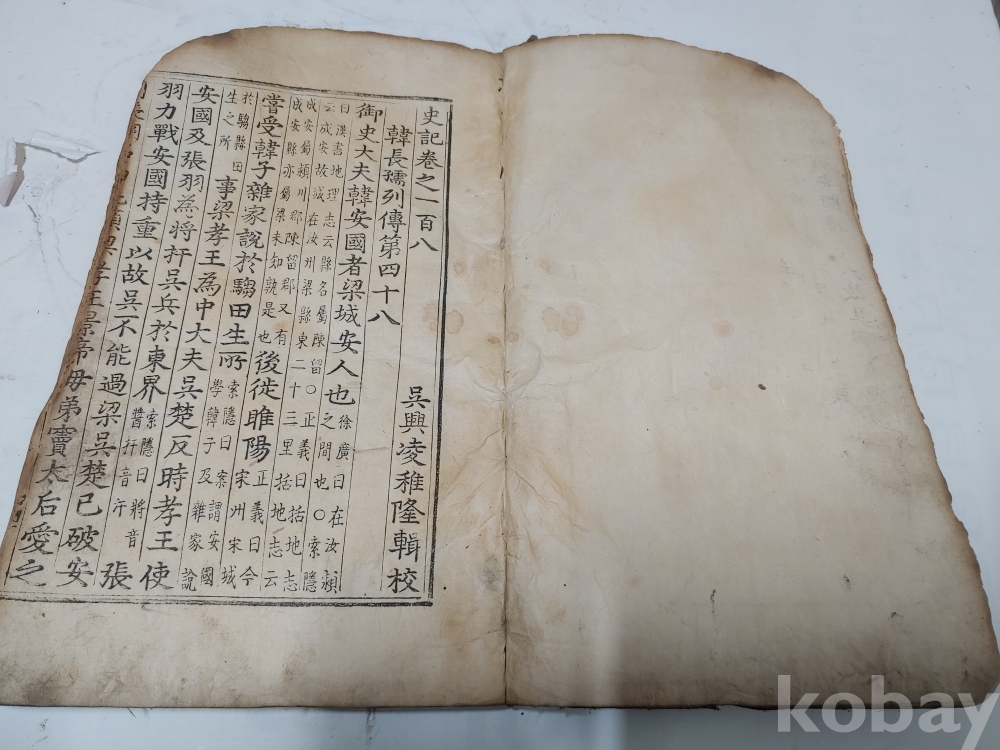 史記卷之一百八　吳興凌稚隆輯校
韓長孺列傳第四十八
御史大夫韓安國者梁城安人也徐廣曰在汝潁之間也〇索隱
曰漢書地理志云縣名屬陳留〇正義曰括地志云成安故城在汝州梁縣東二十三里括地志云
成安屬潁川郡陳留郡又有成安縣亦屬梁未知孰是也後徙睢陽正義曰今宋州宋城
嘗受韓子雜家說於騶田生所索隱曰案謂安國學韓子及雜家說
於騶縣田生之所事梁孝王為中大夫吳楚反時孝王使
安國及張羽為將扞吳兵於東界索隱曰將音醬扞音汗張
羽力戰安國持重以故吳不能過梁吳楚已破安
顯梁孝王景帝母弟竇太后愛之
kobay